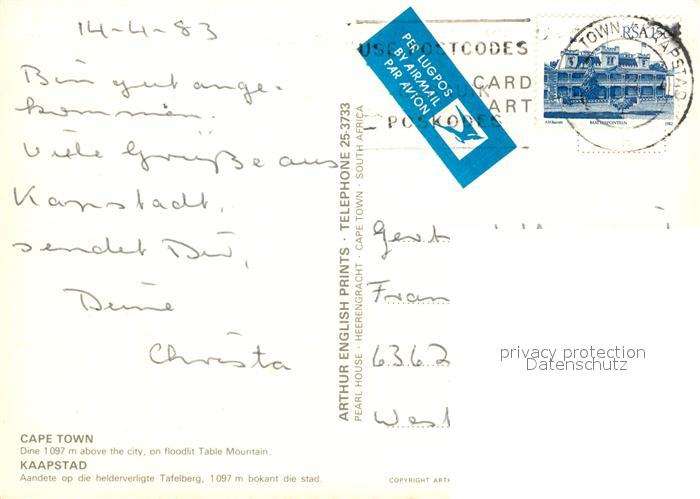 14-4-83
Bin gut ange-
kommen.
Viele Grüße aus
Kapstadt,
sendet Dir,
Deine
Christa
CAPE TOWN
Dine 1097 m above the city, on floodlit Table Mountain.
KAAPSTAD
Aandete op die helderverligte Tafelberg, 1097 m bokant die stad.
ARTHUR ENGLISH PRINTS · TELEPHONE 25-3733
PEARL HOUSE · HEERENGRACHT · CAPE TOWN · SOUTH AFRICA
COPYRIGHT ARTH
PER LUGPOS
BY AIRMAIL
PAR AVION
USE POSTCODES
CARD
UIK
ART
POSKODES
RSA 15c
MATJESFONTEIN
1982
TOWN KAAPSTAD
Gert
Fran
6362
West
privacy protection
Datenschutz